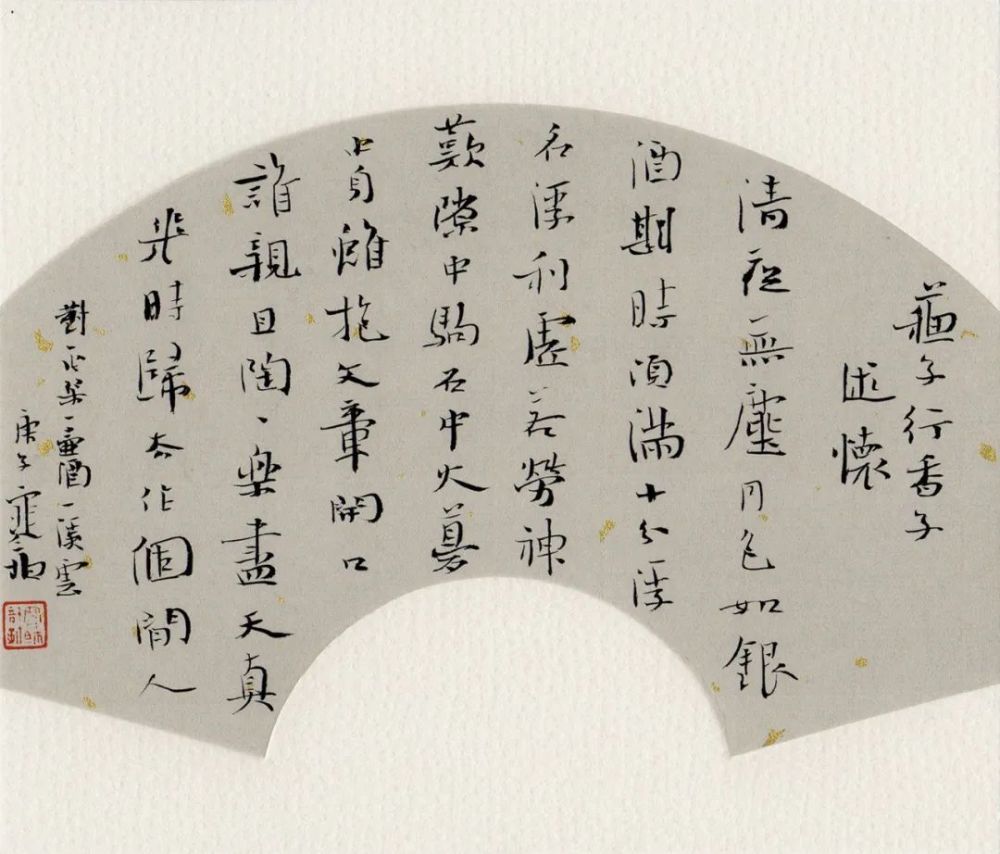 蘇子行香子
述懷
清夜無塵月色如銀
酒斟時須滿十分浮
名浮利虛苦勞神
歎隙中駒石中火夢
中身雖抱文章開口
誰親且陶、樂盡天真
幾時歸去作個閒人
對一張琴一壺酒一溪雲
庚子